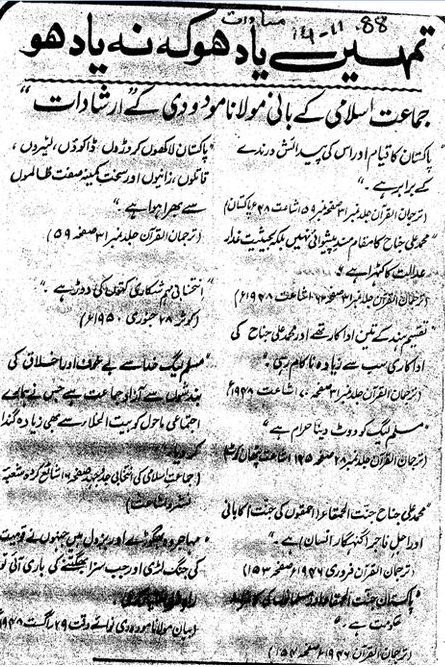 مساوات 14-11-88
تمہیں یاد ہو کہ نہ یاد ہو
جماعت اسلامی کے بانی مولانا مودودی کے "ارشادات"
"پاکستان کا قیام اور اس کی پیدائش درندے
کے برابر ہے۔"
(ترجمان القرآن جلد نمبر ۳۱ صفحہ نمبر ۵۹ اشاعت ۴۸ء پاکستان)
"محمد علی جناح کا مقام مسند پیشوائی نہیں بلکہ بحیثیت غدار
عدالت کا کٹہرا ہے"
(ترجمان القرآن جلد نمبر ۳۱ صفحہ اشاعت ۱۹۴۸ء)
تقسیم ہند کے تین اداکار تھے اور محمد علی جناح کی
اداکاری سب سے زیادہ ناکام رہی۔"
(ترجمان القرآن جلد نمبر ۳۱ صفحہ ۷۰ اشاعت ۱۹۴۸ء)
"مسلم لیگ کو ووٹ دینا حرام ہے"
(ترجمان القرآن جلد نمبر ۲۸ صفحہ ۱۴۵ اشاعت پٹھان کوٹ)
"محمد علی جناح جنّت الحمقاء (احمقوں کی جنت) کا بانی
اور اجل فاجر (گنہگار انسان) ہے۔"
(ترجمان القرآن فروری ۱۹۴۶ء صفحہ ۱۵۳)
"پاکستان جنّت الحمقاء اور مسلمانوں کی کافرانہ
حکومت ہے۔"
(ترجمان القرآن ۱۹۴۶ء صفحہ ۱۵۴)
"پاکستان لاکھوں کروڑوں، ڈاکوؤں، لٹیروں،
قاتلوں، زانیوں اور سخت کمینہ صفت ظالموں
سے بھرا ہوا ہے۔"
(ترجمان القرآن جلد نمبر ۳۱ صفحہ ۵۹)
"انتخابی مہم شکاری کتوں کی دوڑ ہے۔"
(کوثر ۲۸ جنوری ۱۹۵۰ء)
"مسلم لیگ خدا سے بے خوف اور اخلاق کی
بندشوں سے آزاد جماعت ہے جس نے ہمارے
اجتماعی ماحول کو بیت الخلاء سے بھی زیادہ گندا
کر دیا۔"
(جماعت اسلامی کی انتخابی جدوجہد صفحہ ۶ شائع کردہ شعبہ
نشر و اشاعت)
"مہاجر وہ بھگوڑے اور بزدل ہیں جنہوں نے قومیت
کی جنگ لڑی اور جب سزا بھگتنے کی باری آئی تو
راہ فرار اختیار کی"
(بیان مولانا مودودی نوائے وقت ۲۹ اگست ۱۹۴۸ء